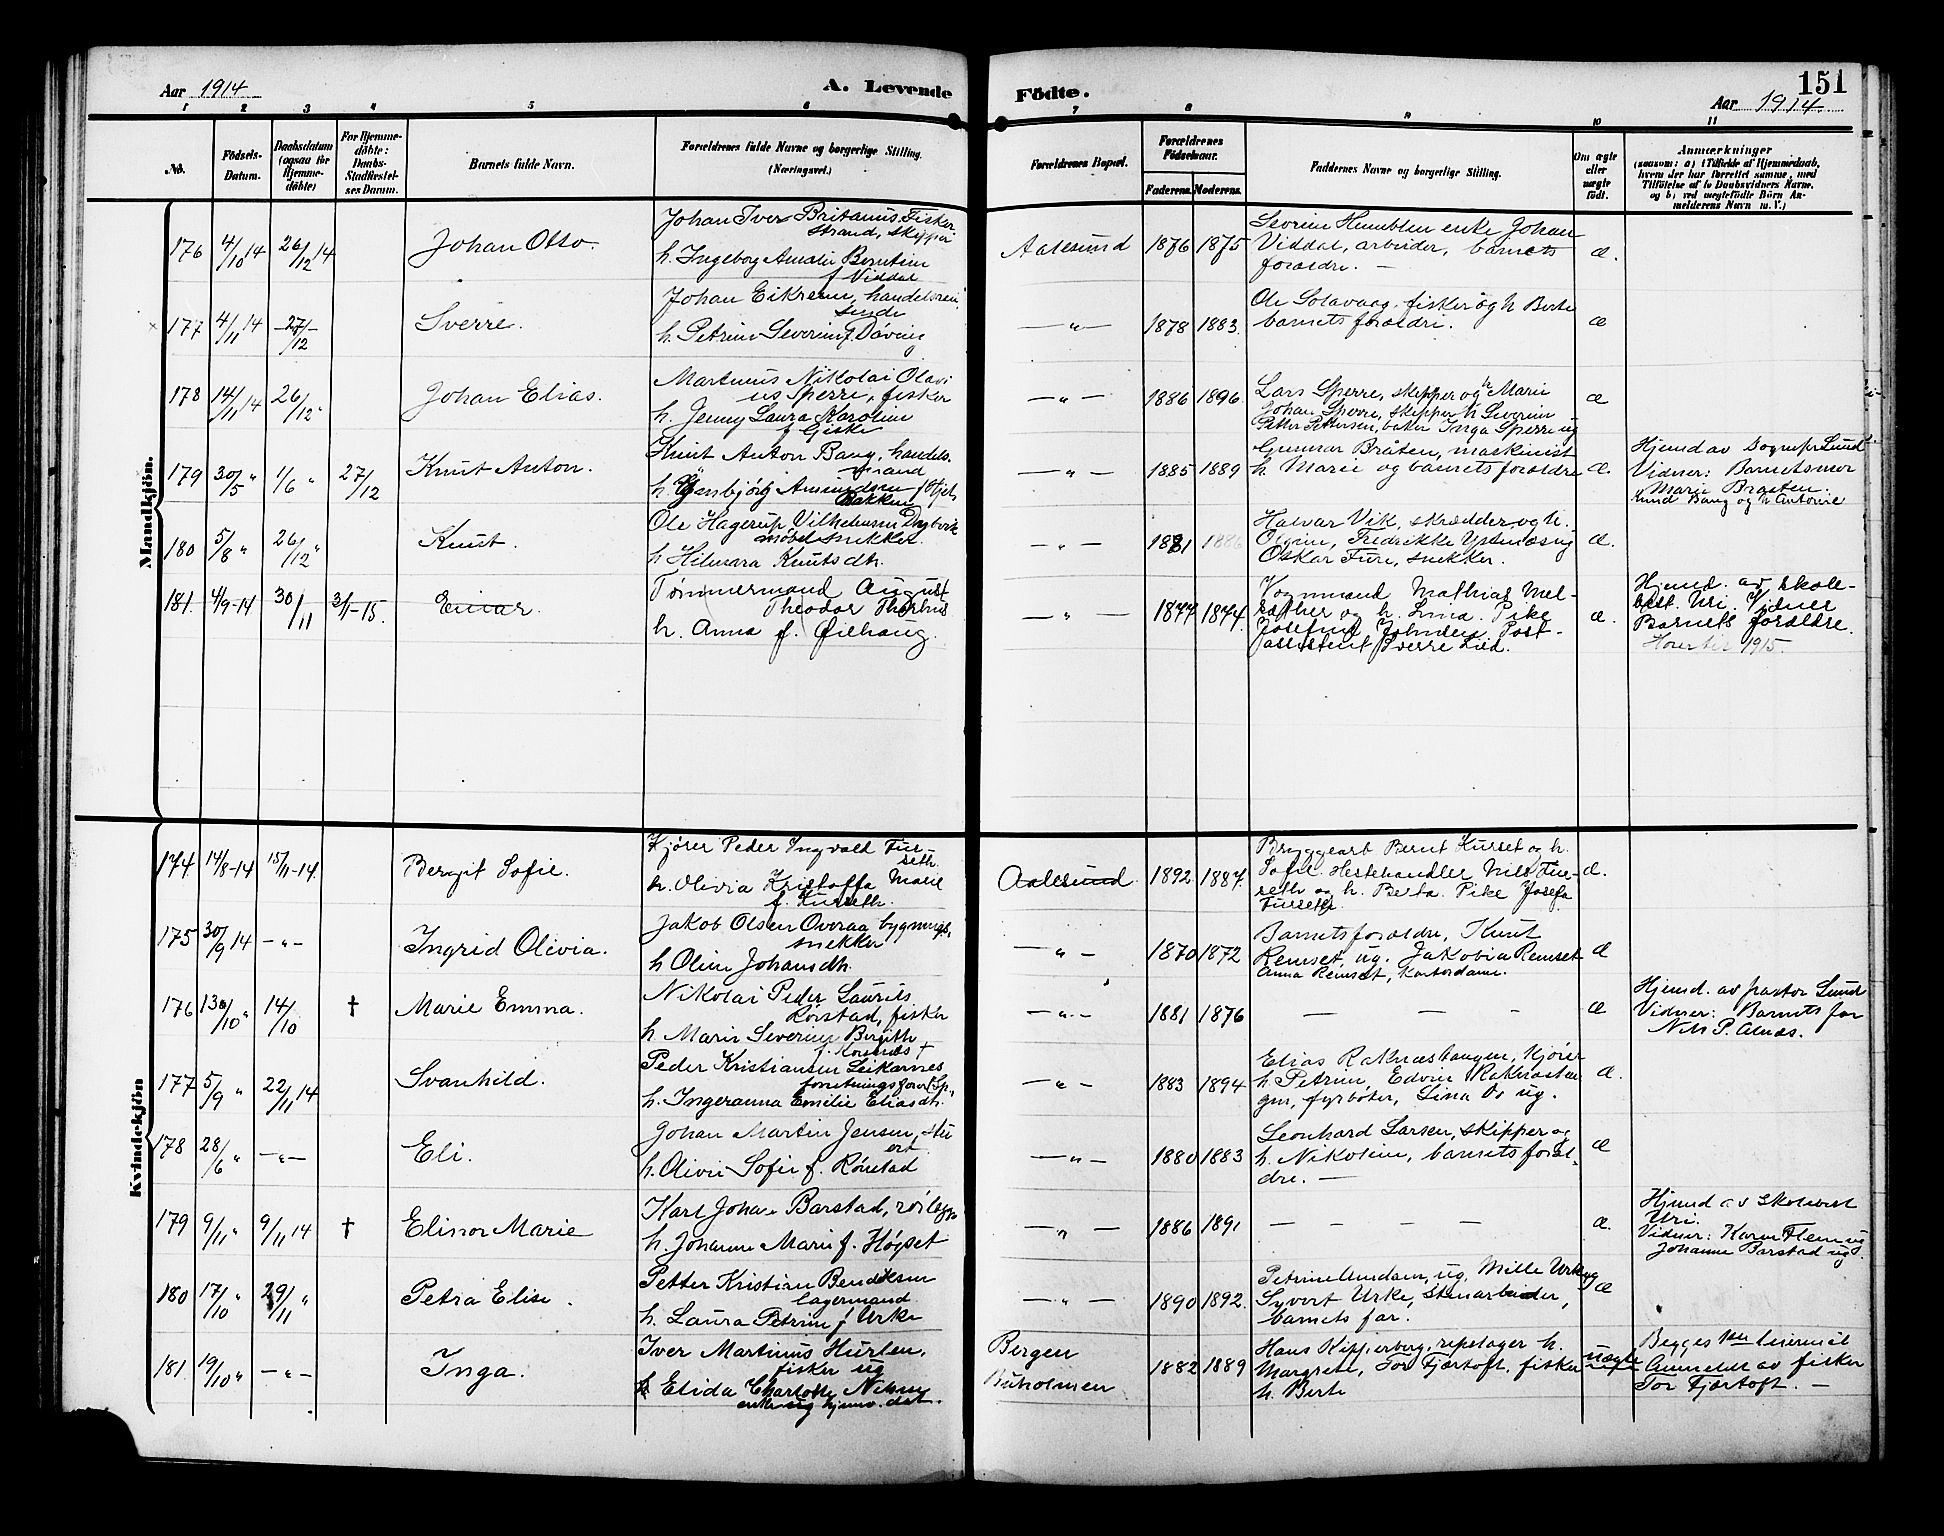 151
Aar 1914
A. Levende
Födte.
Aar 1914
1 2 3 4 5 6 7 8 9 10 11
No.
Födsels-Datum.
Daabsdatum (ogsaa for Hjemme-döbte)
For Hjemme-döbte: Daabs-Stadfæstel-ses Datum.
Barnets fulde Navn.
Forældrenes fulde Navne og borgerlige Stilling.
(Næringsvei.)
Forældrenes Bopæl.
Forældrenes Födselsaar.
Faderens. Moderens.
Faddernes Navne og borgerlige Stilling.
Om ægte eller uægte födt.
Anmærkninger
(saasom: a) i Tilfælde af Hjemmedaab,
hvem der har forrettet samme, med
Tilföielse af to Daabsvidners Navne,
og b) ved uægtefödte Börn An-
melderens Navn m. V.)
Mandkjön.
176 4/10 14 26/12 14 Johan Otto.
Johan Iver Britanus Fisker
strand, skipper
h. Ingeborg Amalie Berntine
f Viddal
Aalesund 1876 1875
Severine Humblen enke Johan
Viddal, arbeider, barnets
forældre. —
æ.
177 4/11 14 27/12 Sverre.
Johan Eikrem, handelsrei
sende
h. Petrine Severine f. Døving
— " — 1878 1883.
Ole Solavaag, fisker og h Berte
barnets forældre.
æ
178 14/11 14 26/12 " Johan Elias.
Martinus Nikolai Olavi
us Sperre, fisker
h. Jenny Laura Karoline
f Giske
— " — 1886 1896.
Lars Sperre, skipper og h Marie
Johan Sperre, skipper h Severine
Petter Pettersen, baker Inga Sperre ug
æ
179 30/5 " 1/6 " 27/12 Knut Anton.
Knut Anton Bang, handels.
mand
h. Gunbjørg Amundsen f
bakken
— " — 1885 1889
Gunnar Bråten, maskinist
h. Marie og barnets forældre
æ.
Hjemd av Sognepr Lund
Vidner: Barnets mor
Marie Braaten.
Knud Bang og h Antonie
180 5/8 " 26/12 " Knut.
Ole Hagerup Vilhelmsen Dybvik
møbelsnekker
h Hilmara Knutsdtr.
— " — 1881 1886
Halvar Vik, skrædder og h.
Olgine, Fredrikke Ystenæs ug
Oskar Fure, snekker.
æ.
181. 4/9-14 30/11 3/1-15. Einar.
Tømmermand August
Theodor
h. Anna f. Øilhaug.
— " — 1877 1874.
Vognmand Mathias Mel-
sæther og h. Lina. Pike
Josefine Johnsen. Post-
assistent Sverre Lied.
æ.
Hjemd. av skole-
best. Uri. Vidner
Barnets forældre.
1915.
Kvindekjön
174 14/8-14 15/11-14. Bergit Sofie.
Kjører Peder Ingvald Fur-
seth.
h. Olivia Kristoffa Marie
f. Kurseth.
Aalesund. 1892. 1887.
Bryggearb Bernt Kurset og h.
Sofie. Hestehandler Nils Fur-
seth og h. Berta. Pike Josefa
Furseth
æ.
175 30/9 14 — " — Ingrid Olivia.
Jakob Olsen Overaa bygnings.
snekker
h Oline Johansdtr.
— " — 1870 1872
Barnets forældre, Knut
Remset, ug. Jakobia Remset
Anna Remset, Kontordame.
æ
176 13/10 " 14/10 † Marie Emma.
Nikolai Peder Laurits
Rørstad, fisker
h Marie Severine Birgith
f.
— " — 1881 1876 — — —
æ
Hjemd. av pastor Lund
Vidner: Barnets far
Nils P. Alnæs.
177 5/9 " 22/11 14 Svanhild.
Peder Kristiansen Leikarnes
forretningsfører
h. Ingeranna Emilie Eliasdtr.
— " — 1883 1894
Elias Raknæshaugen, kjører
h Petrine, Edvin Raknæshau
gen, fyrbøter, Lina Do ug.
æ.
178 28/6 " — " — Eli.
Johan Martin Jensen, stu
ert
h. Olivie Sofie f. Rønstad
— " — 1880 1883
Leonhard Larsen, skipper og
h. Nikoline, barnets foræl-
dre. —
æ
179 9/11 " 9/11 14 † Elinor Marie
Karl Johan Barstad, rørlægger
h. Johanne Marie f. Høgset
— " — 1886 1891 — — — —
æ.
Hjemd av Skolebest
Uri.
Vidner: Karen Flem ug
Johanne Barstad ug.
180 17/10 " 29/11 " Petra Elise.
Petter Kristian Bendiksen
lagermand
h. Laura Petrine f Urke
— " — 1890 1892.
Petrine Amdam, ug. Mille Urke ug
Syvert Urke, stenarbeider,
barnets far.
æ
181. 19/10 " — " — Inga.
Iver Martinus Hurlen,
fisker ug
Elida Charlotte
enke ug hjemv. dat.
Bergen
Buholmen
1882 1889
Hans Kipperberg, repslager h.
Margrete, Tor Fjærtoft, fisker
h. Berte
uægte
Begges 1ste leiermål
Anmeldt av fisker
Tor Fjærtoft. —